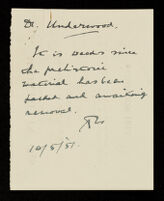 Dr. Underwood.
It is weeks since
the prehistoric
material has been
packed and awaiting
removal.
10/5/51.